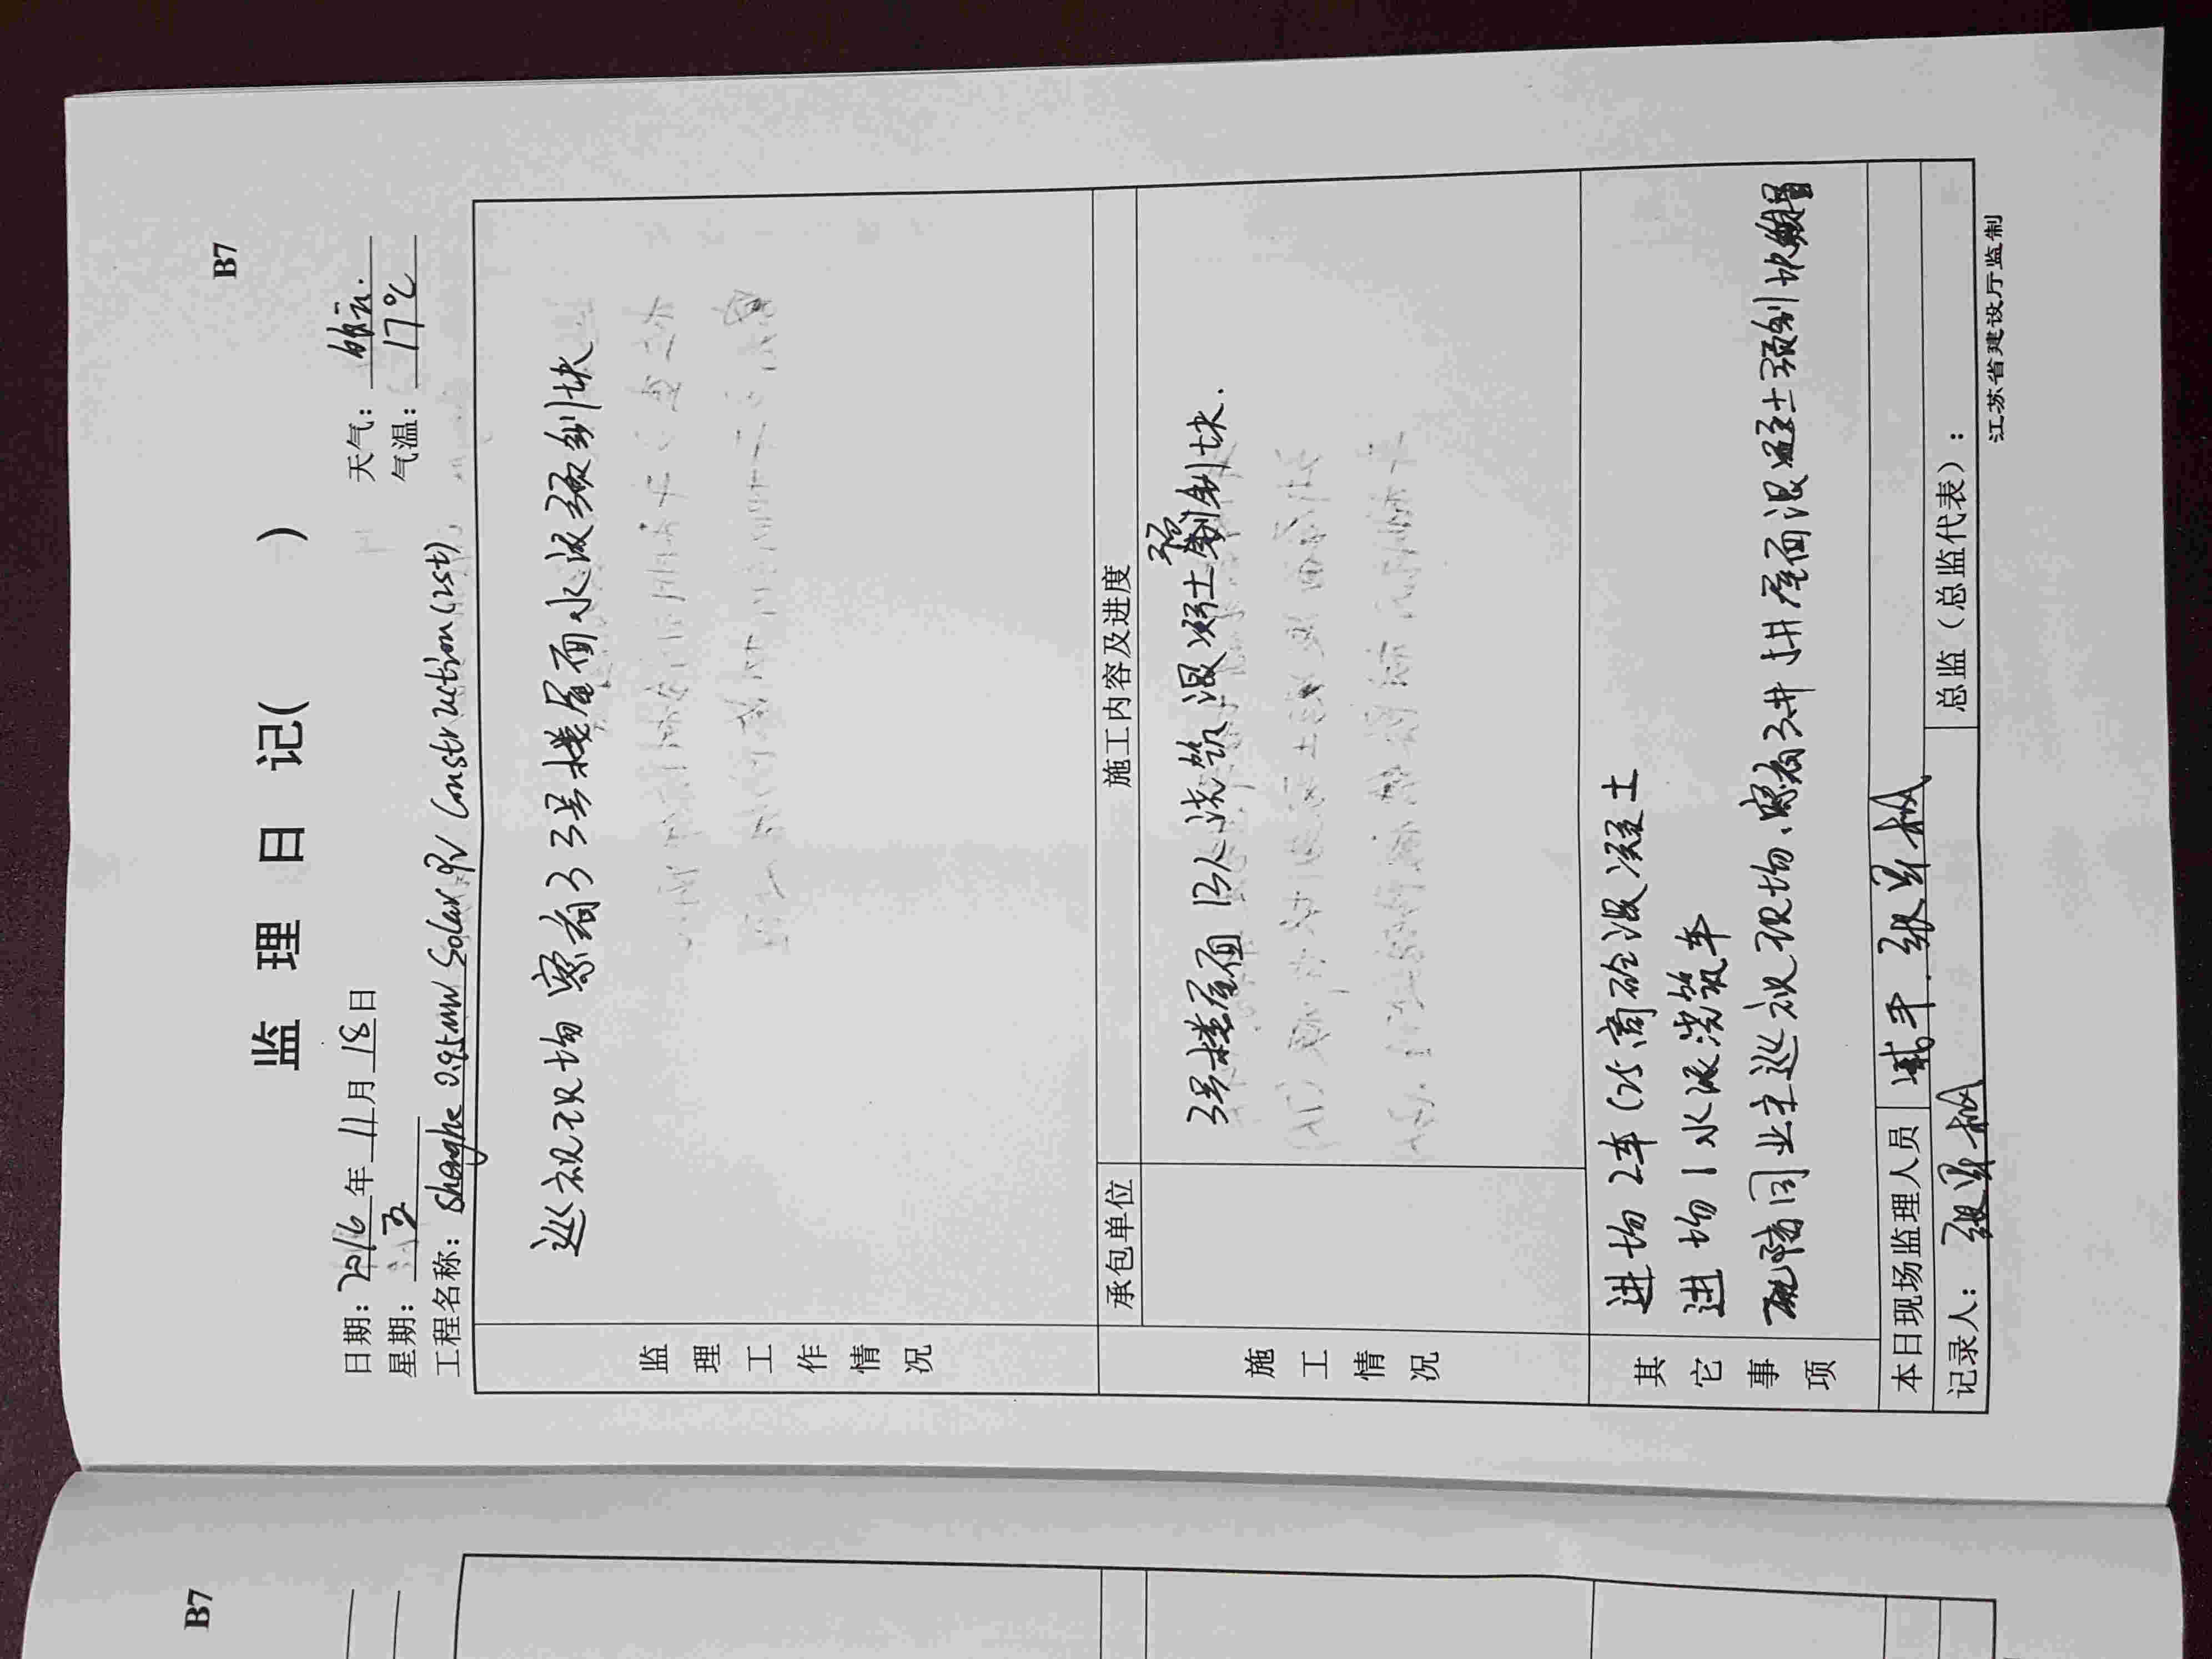 B7
监 理 日 记( )
日期: 2016 年 11 月 18 日 天气: 多云.
星期: 五 气温: 17℃
工程名称: Shenghe 0.95MW Solar PV Construction (1st)
监理工作情况
巡视现场 察看3号楼屋面水泥预制块
承包单位 施工内容及进度
施工情况
3号楼屋面 13人浇筑混凝土预制块.
其它事项
进场2车C25商砼混凝土
进场1水泥浇筑车
陪同业主巡视现场、察看3# 屋面混凝土预制块
本日现场监理人员
记录人: 总监（总监代表）:
江苏省建设厅监制
B7